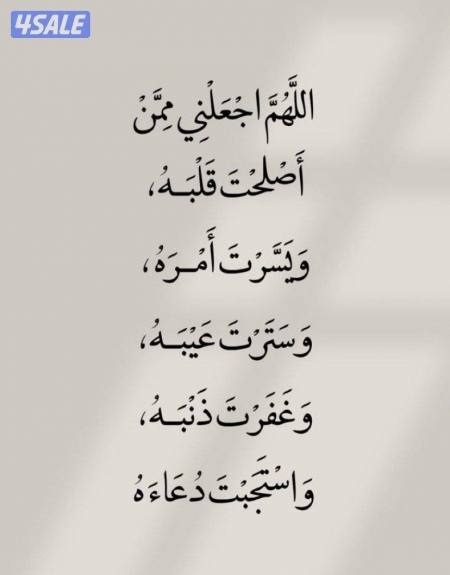 4SALE
اللَّهُمَّ اجْعَلْنِي مِمَّنْ
أَصْلَحْتَ قَلْبَـهُ،
وَيَسَّرْتَ أَمْـرَهُ،
وَسَتَرْتَ عَيْبَـهُ،
وَغَفَرْتَ ذَنْبَـهُ،
وَاسْتَجَبْتَ دُعَاءَهُ